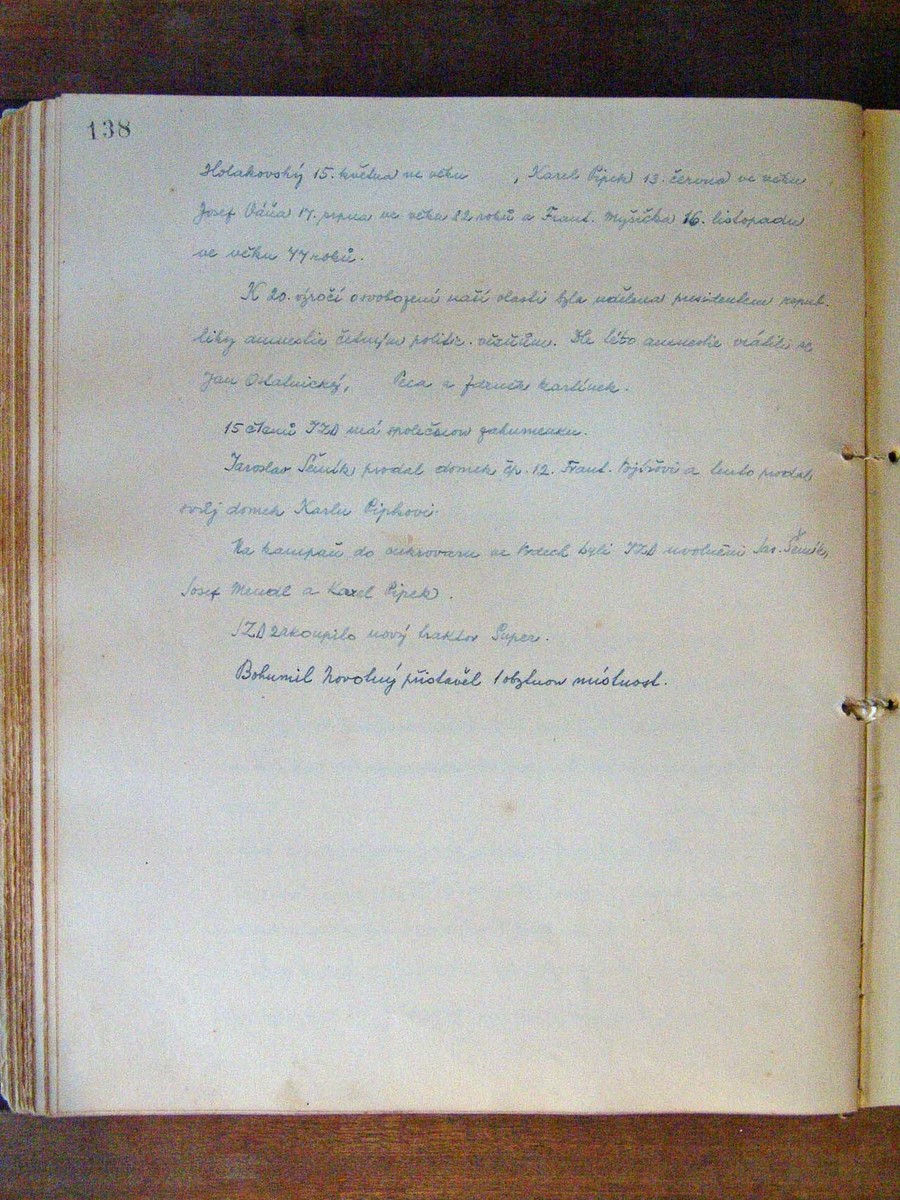 138
Holakovský 15. května ve věku , Karel Pipek 13. června ve věku
Josef Váňa 17. srpna ve věku 22 roků a Frant. Myšička 16. listopadu
ve věku 77 roků.
K 20. výročí osvobození naší vlasti byla udělena presidentem repub-
liky amnestie četným politic. vězňům. Dle této amnestie vrátili se
Jan Ostatnický, Peca a Zdeněk Martínek.
15 členů JZD má společnou zahumenku.
Jaroslav Šemík prodal domek čp. 12. Frant. a tento prodal
svůj domek Karlu Pipkovi.
Na kampaň do cukrovaru ve byli JZD uvolněni Jar. Šemík,
Josef Mendl a Karel Pipek.
JZD zakoupilo nový traktor Super.
Bohumil Novotný přistavěl 1 obytnou místnost.